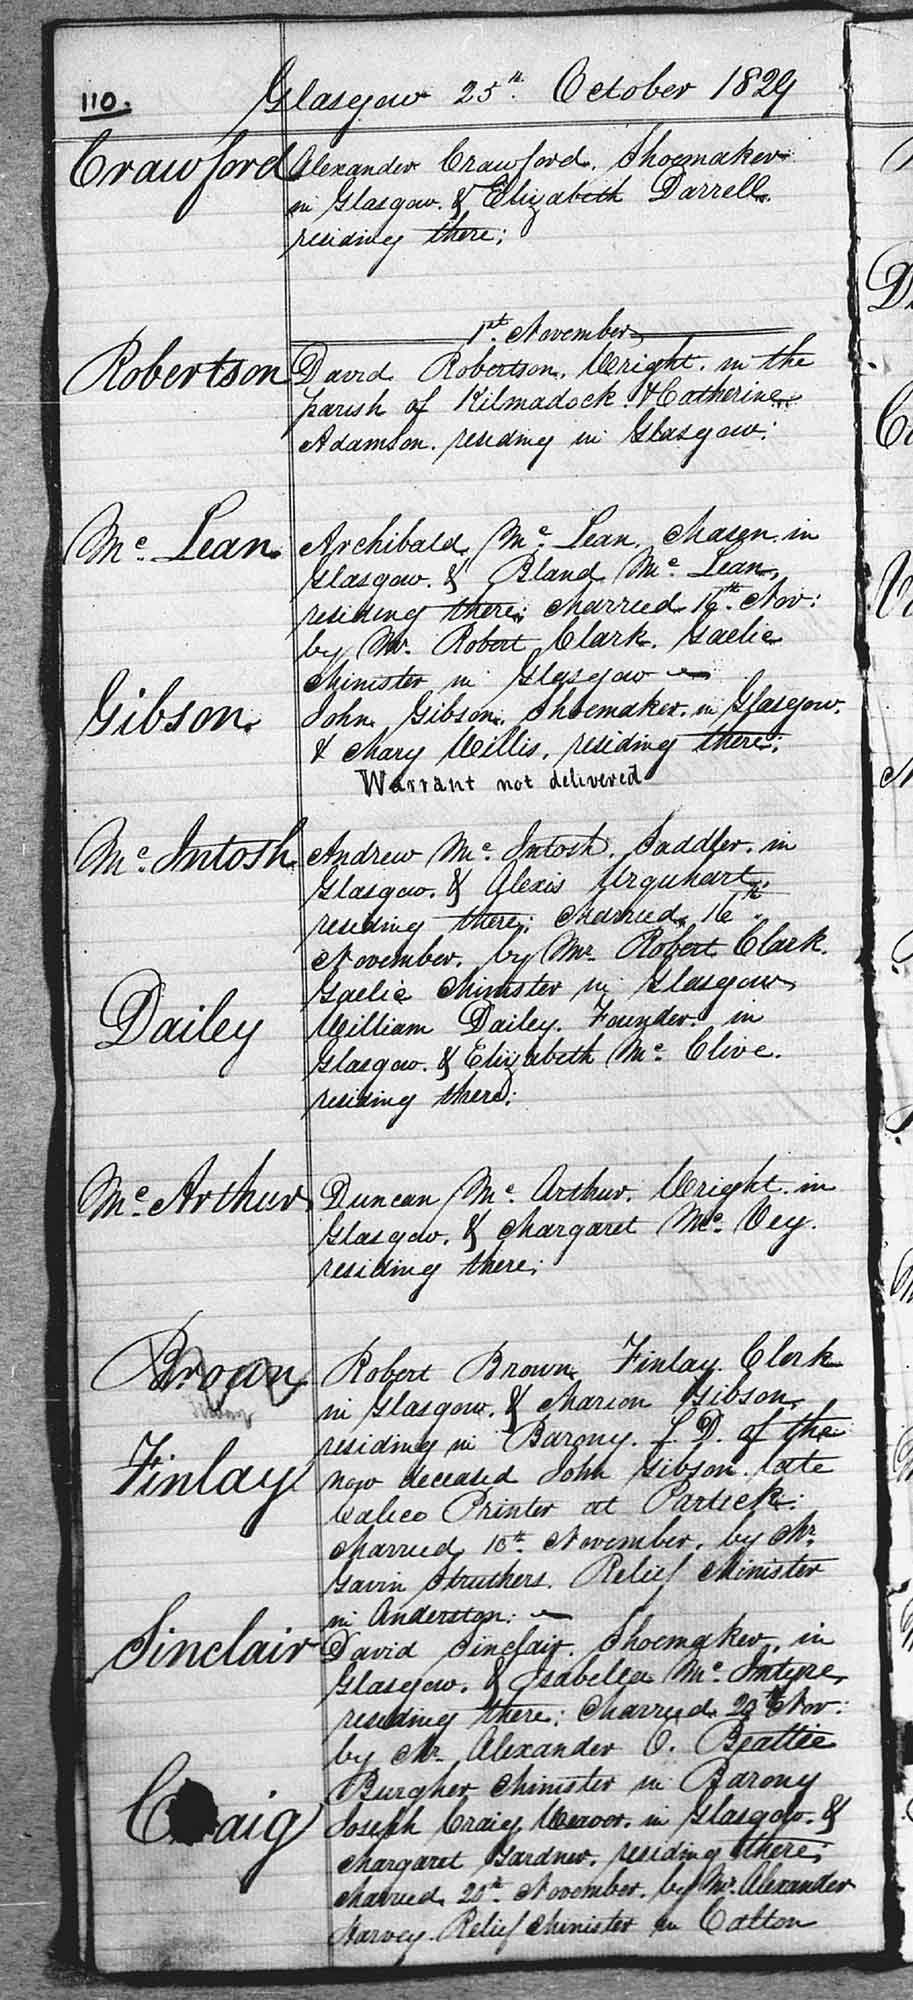 110.
Glasgow 25th October 1829
Crawford
Alexander Crawford, Shoemaker
in Glasgow. & Elizabeth Darrell.
residing there;
1st November
Robertson
David Robertson, Wright. in the
parish of Kilmadock. & Catherine
Adamson. residing in Glasgow:
Mc Lean
Archibald Mc Lean, Mason in
Glasgow. & Bland Mc Lean,
residing there; Married 16th Nov:
by Mr. Robert Clark. Gaelic
Minister in Glasgow
Gibson.
John Gibson. Shoemaker. in Glasgow.
& Mary Willis, residing there.
Warrant not delivered
Mc Intosh
Andrew Mc Intosh. Saddler. in
Glasgow. & Alexis Urquhart.
residing there; Married 16th
November. by Mr. Robert Clark.
Gaelic Minister in Glasgow
Dailey
William Dailey. Founder. in
Glasgow. & Elizabeth Mc Clive.
residing there;
Mc Arthur
Duncan Mc Arthur. Wright. in
Glasgow. & Margaret Mc Vey.
residing there;
Brown
Finlay
Robert Brown Finlay Clerk
in Glasgow. & Marion Gibson,
residing in Barony. L. D. of the
now deceased John Gibson late
Calico Printer at Partick:
Married November. by Mr.
Gavin Struthers. Relief Minister
in Anderston.
Sinclair
David Sinclair. Shoemaker. in
Glasgow. & Isabella Mc Intyre,
residing there; Married Nov:
by Mr. Alexander O. Beattie
Burgher Minister in Barony
Craig
Joseph Craig Weaver. in Glasgow. &
Margaret Gardner. residing there;
Married 20th November. by Mr. Alexander
Harvey Relief Minister in Calton